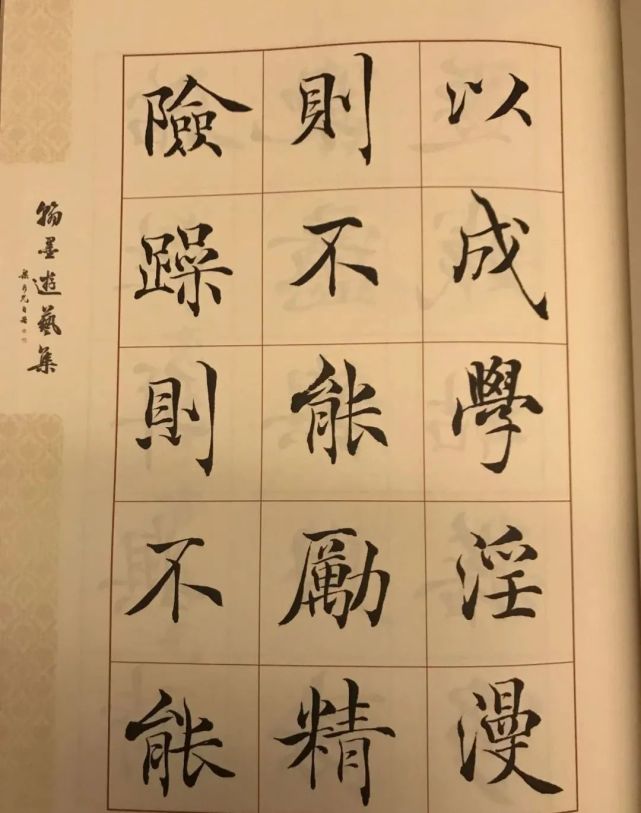 以成學淫漫
則不能勵精
險躁則不能
翰墨遊藝集